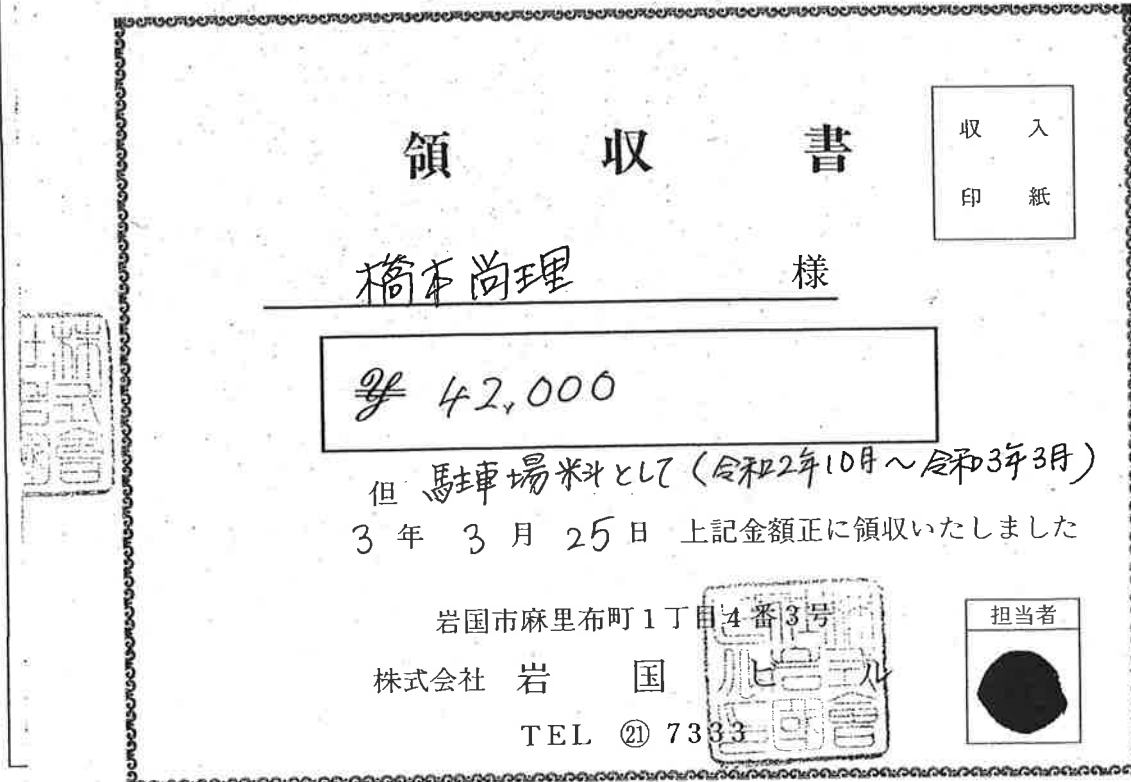 領収書
収入
印紙
橋本尚理 様
¥ 42,000
但 駐車場料として(令和2年10月~令和3年3月)
3年3月25日 上記金額正に領収いたしました
岩国市麻里布町1丁目4番3号
株式会社 岩国ビル
TEL ㉑ 7333
担当者